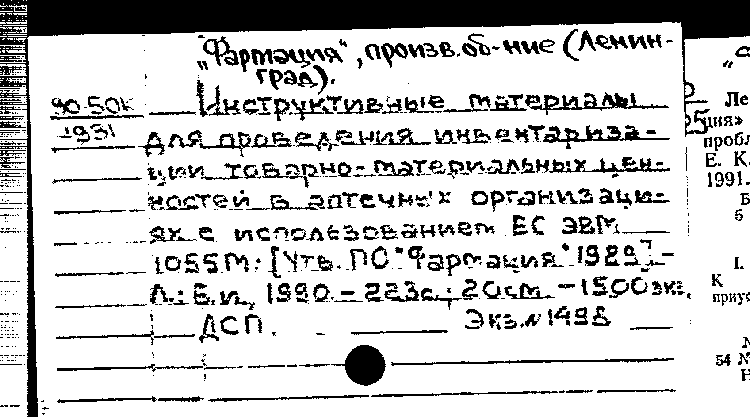 „Фармация", произв. об-ние (Ленин-
град).
90-50к Инструктивные материалы
1931 для проведения инвентариза-
ции товарно-материальных цен-
ностей в аптечных организаци-
ях с использованием ЕС ЭВМ
1055М: [Утв. ПО "Фармация" 1989]-
Л.: Б.и, 1990.- 223с.; 20см. -1500экз.
ДСП. Экз.№1498
Ле
ция»
пробл
Е. К
1991.
Б
6
I.
К
приус
54 №
Н